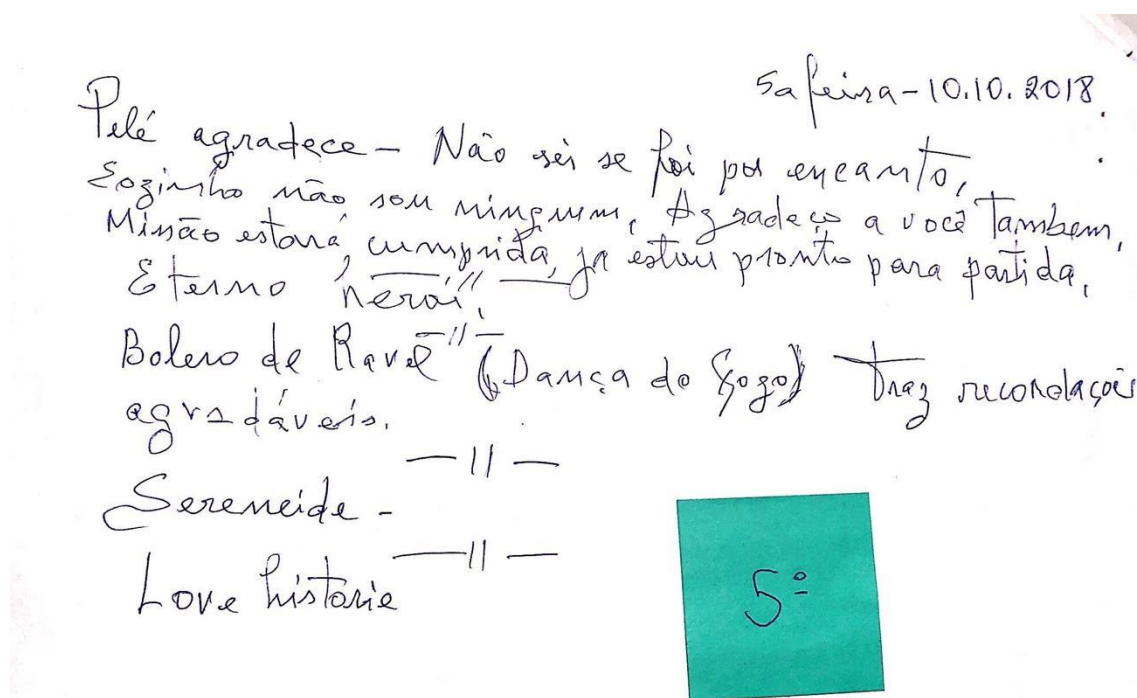 5a feira - 10.10.2018.
Pelé agradece - Não sei se foi por encanto,
Sozinho não sou ninguem, Agradeço a você Tambem,
Missão estará, cumprida, ja estou pronto para partida,
Eterno herói,
—//—
Bolero de Ravel (Dança do Fogo) Traz recordações
agradáveis.
—//—
Sereneide -
—//—
Love historie
5º